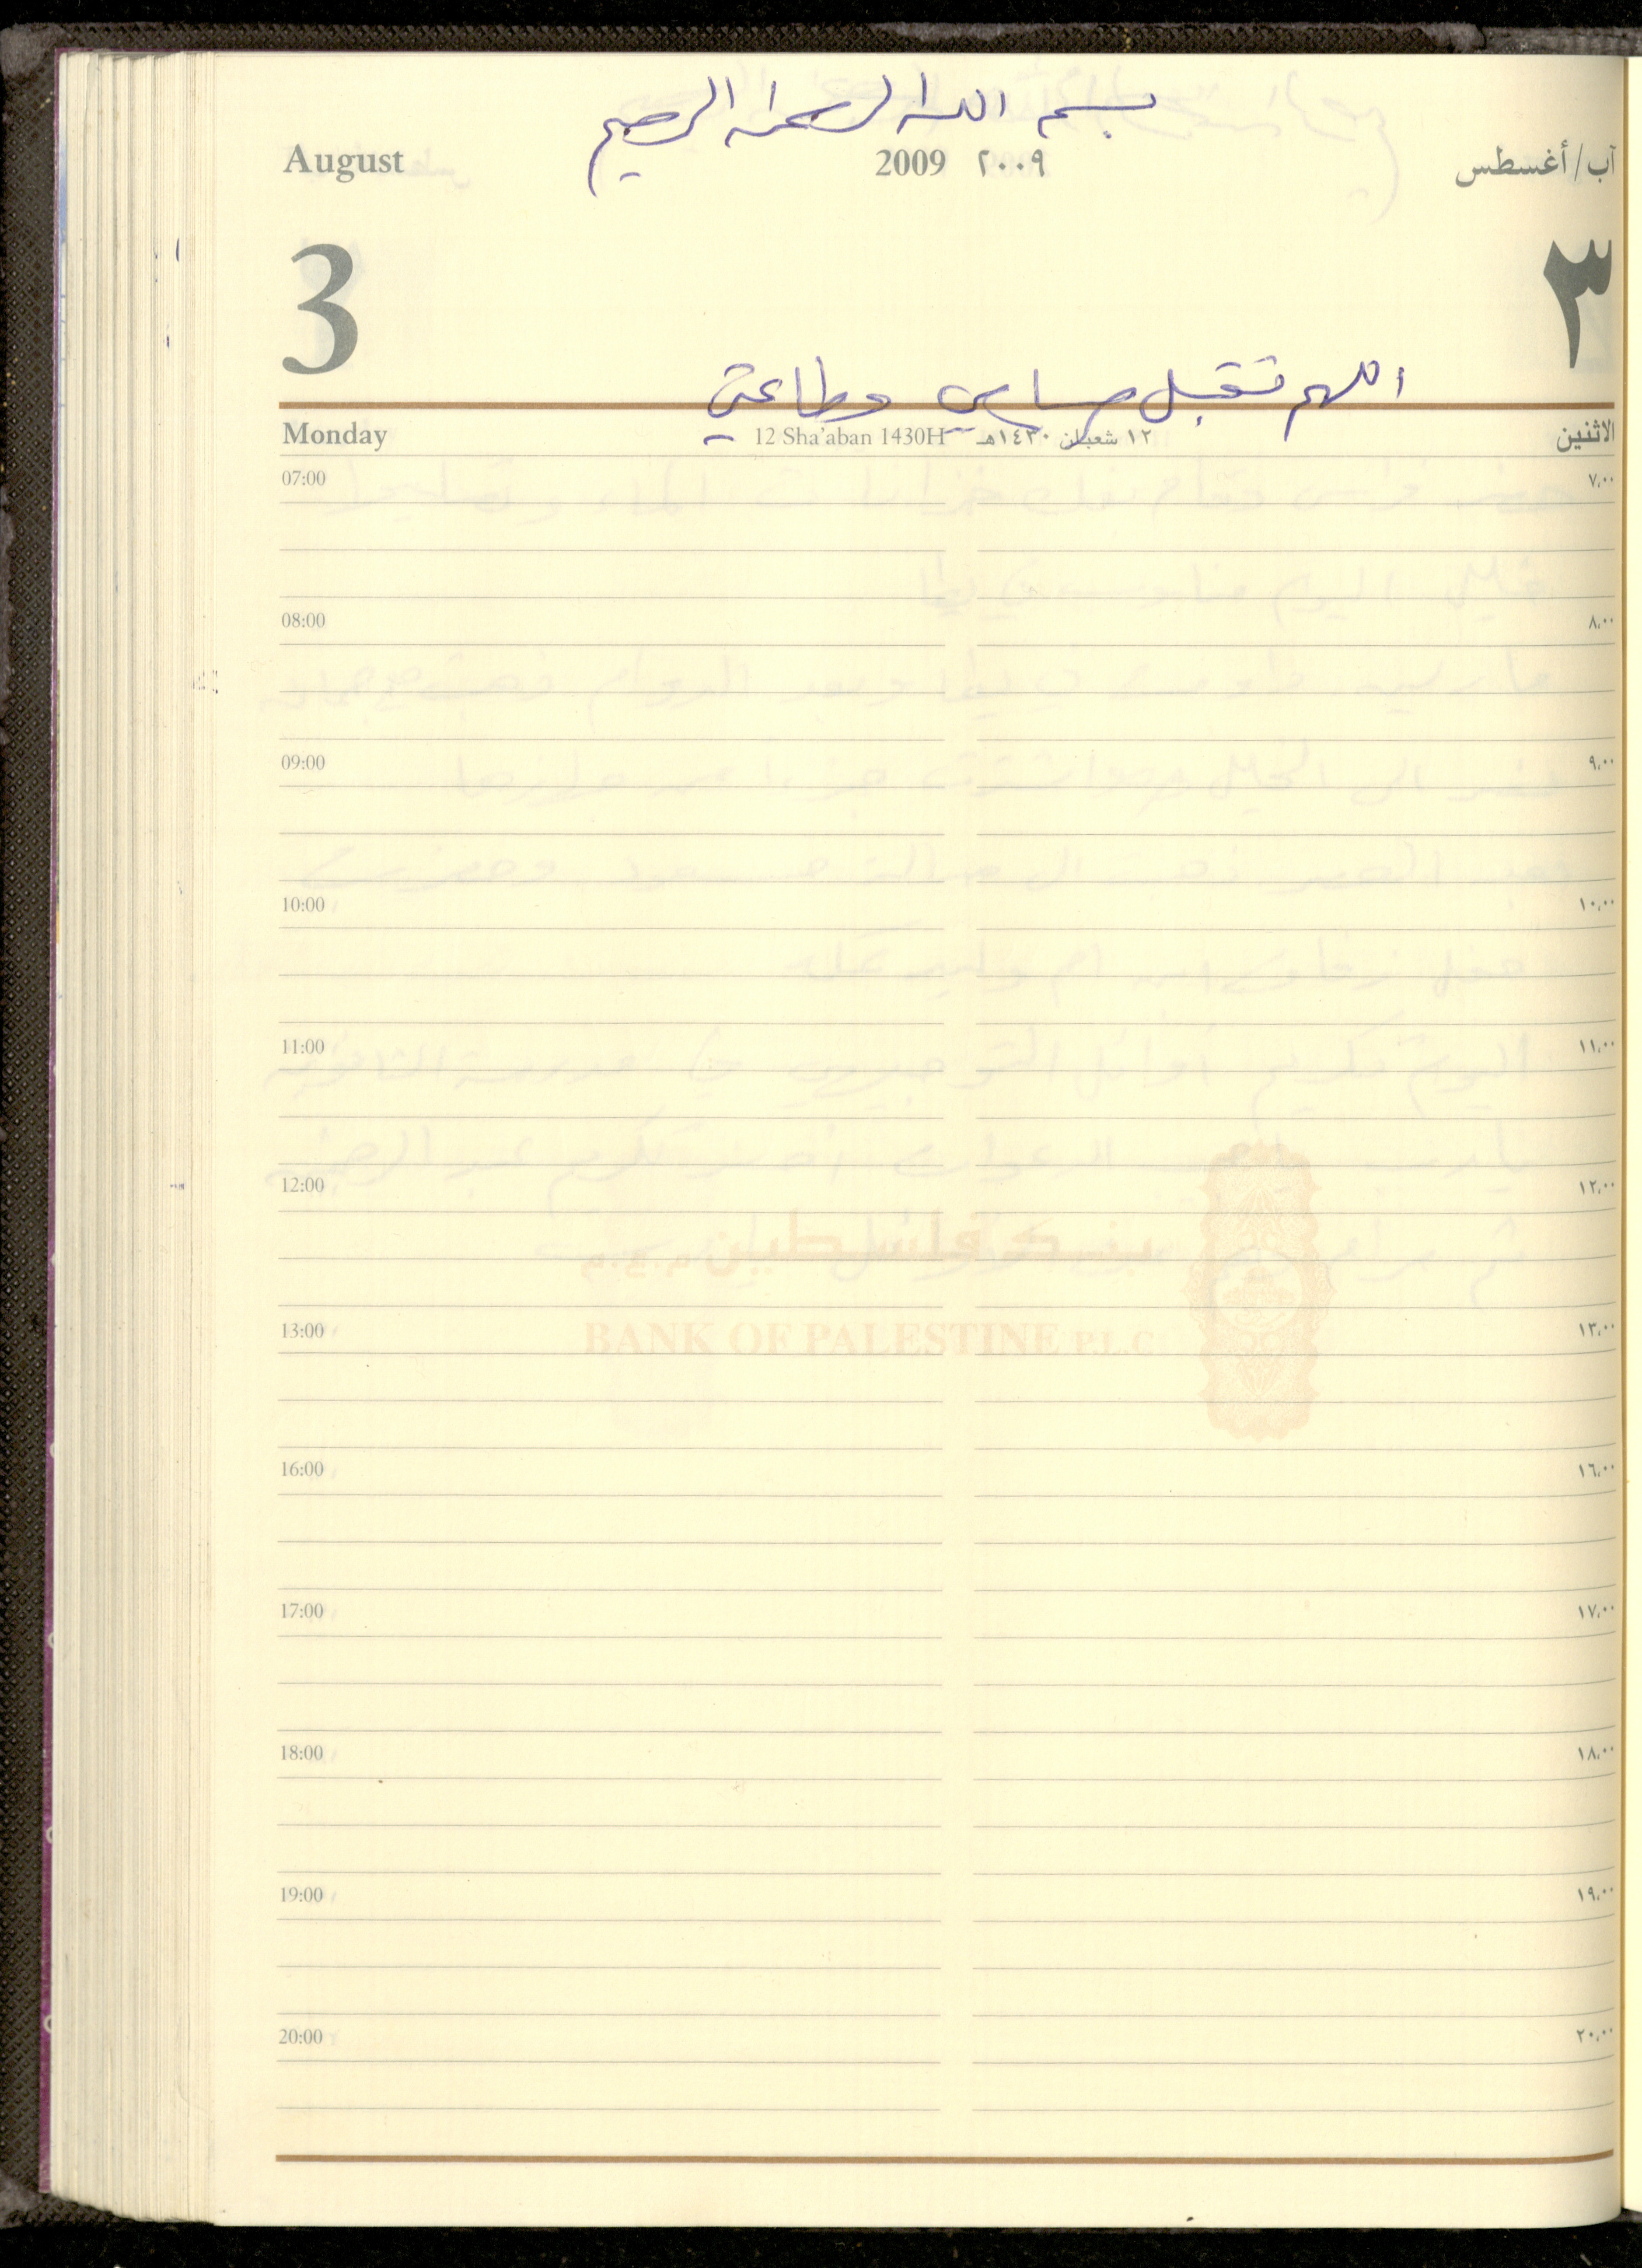 بسم الله الرحمن الرحيم
August 2009 ٢٠٠٩ آب/أغسطس
3 ٣
اللهم تقبل صيامي وطاعتي
Monday 12 Sha'aban 1430H ١٢ شعبان ١٤٣٠هـ الاثنين
07:00 ٧,٠٠
08:00 ٨,٠٠
09:00 ٩,٠٠
10:00 ١٠,٠٠
11:00 ١١,٠٠
12:00 ١٢,٠٠
بنك فلسطين م.ع.م
BANK OF PALESTINE P.L.C
13:00 ١٣,٠٠
16:00 ١٦,٠٠
17:00 ١٧,٠٠
18:00 ١٨,٠٠
19:00 ١٩,٠٠
20:00 ٢٠,٠٠